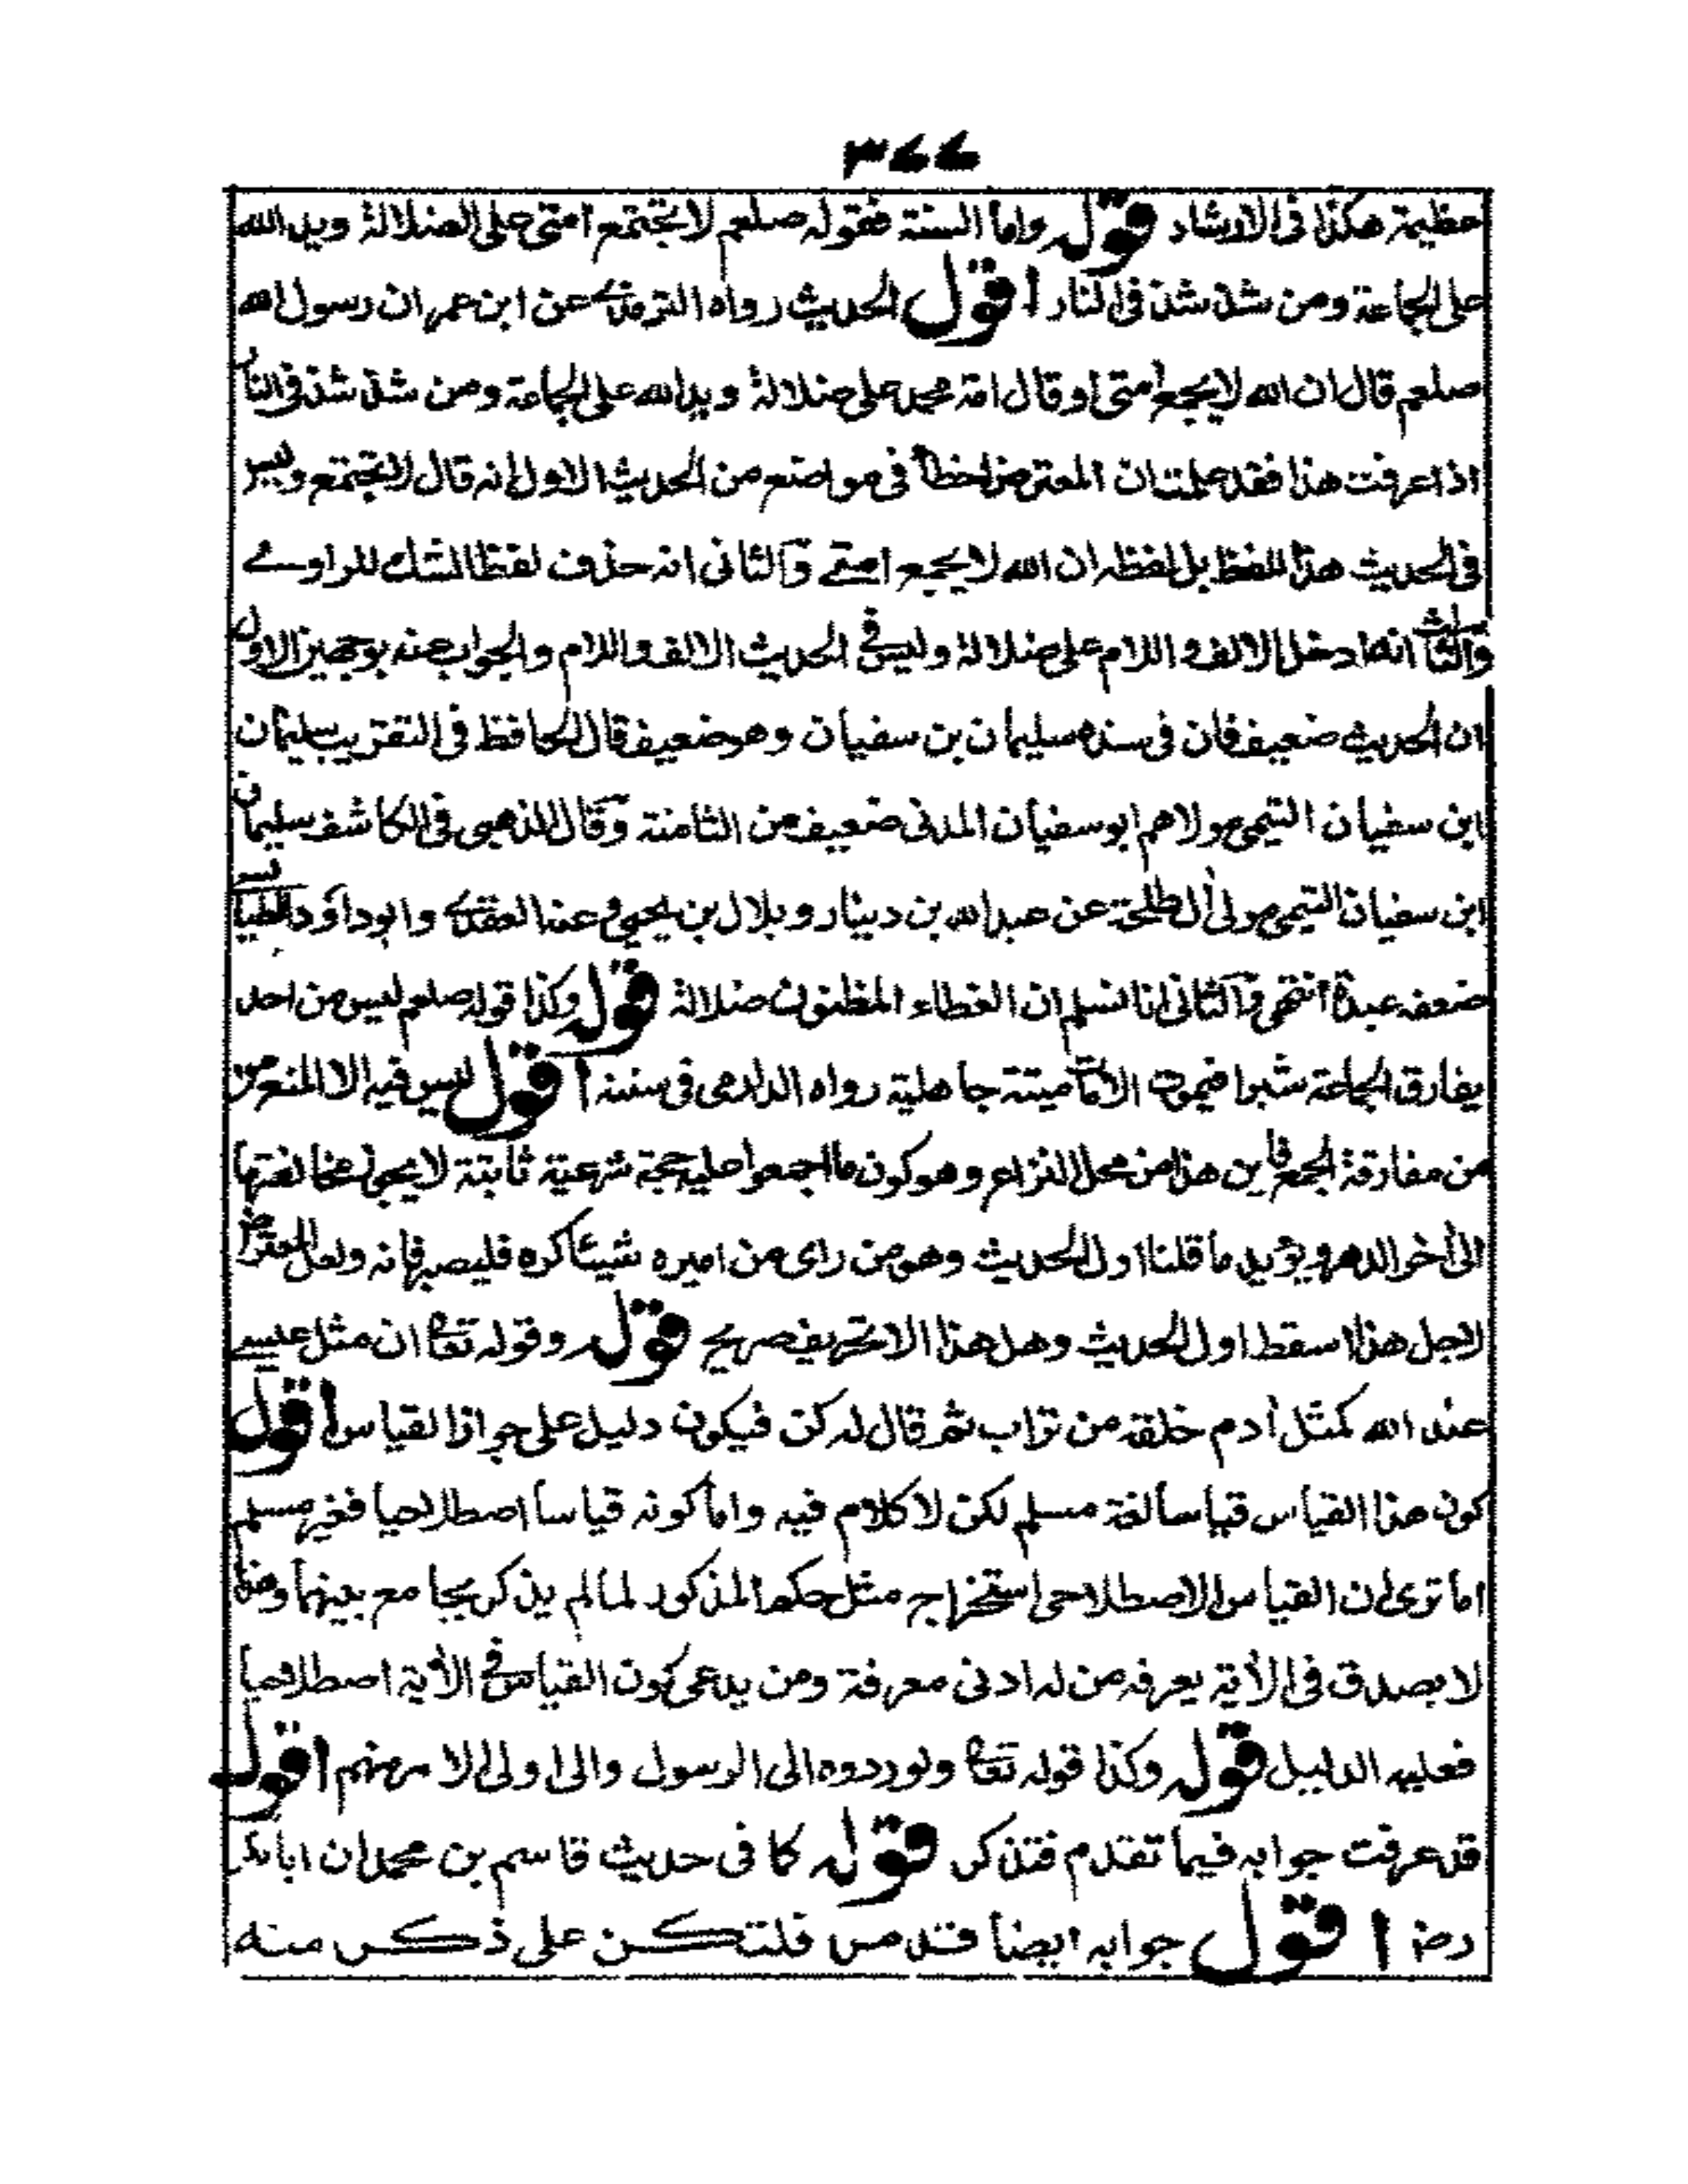 ٣٤٤
عظيمة هكذا فى الارشاد قوله واما السنة فقوله صلعم لا تجتمع امتى على الضلالة ويد الله
على الجماعة ومن شذ شذ فى النار اقول الحديث رواه الترمذى عن ابن عمر ان رسول الله
صلعم قال ان الله لا يجمع امتى او قال امة محمد على ضلالة ويد الله على الجماعة ومن شذ شذ فى النار
اذا عرفت هذا فقد علمت ان المعترض اخطأ فى مواضع من الحديث الاول انه قال لا تجتمع وليس
فى الحديث هذا اللفظ بل لفظه ان الله لا يجمع امتى والثانى انه حذف لفظا لشك للراوى
والثالث انه ادخل الالف واللام على ضلالة وليس فى الحديث الالف واللام والجواب عنه بوجهين الاول
ان الحديث ضعيف فان فى سنده سليمان بن سفيان وهو ضعيف قال الحافظ فى التقريب سليمان
ابن سفيان التيمى مولاهم ابو سفيان المدنى ضعيف من الثامنة وقال الذهبى فى الكاشف سليمان
ابن سفيان التيمى مولى أل طلحة عن عبد الله بن دينار وبلال بن يحيى وعنه العقدى وابو داؤد الطيالسى
ضعفه عبدة انتهى والثانى انا لا نسلم ان الخطاء المظنون ضلالة قوله وكذا قوله صلعم ليس من احد
يفارق الجماعة شبرا فيموت الامات ميتة جاهلية رواه الدارمى فى سننه اقول ليس فيه الا المنع من
من مفارقة الجمع فاين هذا من محل النزاع وهو كون ما اجمعوا عليه حجة شرعية ثابتة لا يجوز مخالفتها
الى أخر الدهر ويؤيد ما قلنا اول الحديث وهو من راى من اميره شيئا كره فليصبر فانه ولعل المعترض
لاجل هذا اسقط اول الحديث وهل هذا الا تحريف صريح قوله وقوله تعا ان مثل عيسى
عند الله كمثل أدم خلقه من تراب ثم قال له كن فيكون دليل على جواز القياس اقول
كون هذا القياس قياسا لغة مسلم لكن لا كلام فيه واما كونه قياسا اصطلاحيا فغير مسلم
اما ترى ان القياس الاصطلاحى استخراج مثل حكم المذكور لما لم يذكر بجامع بينهما وهذا
لا يصدق فى الأية يعرفه من له ادنى معرفة ومن يدعى كون القياس فى الأية اصطلاحيا
فعليه الدليل قوله وكذا قوله تعا ولو ردوه الى الرسول والى اولى الامر منهم اقول
قد عرفت جوابه فيما تقدم فتذكر قوله كما فى حديث قاسم بن محمد ان ابا بكر
رضـ اقول جوابه ايضا قد مر فلتكن على ذكر منه